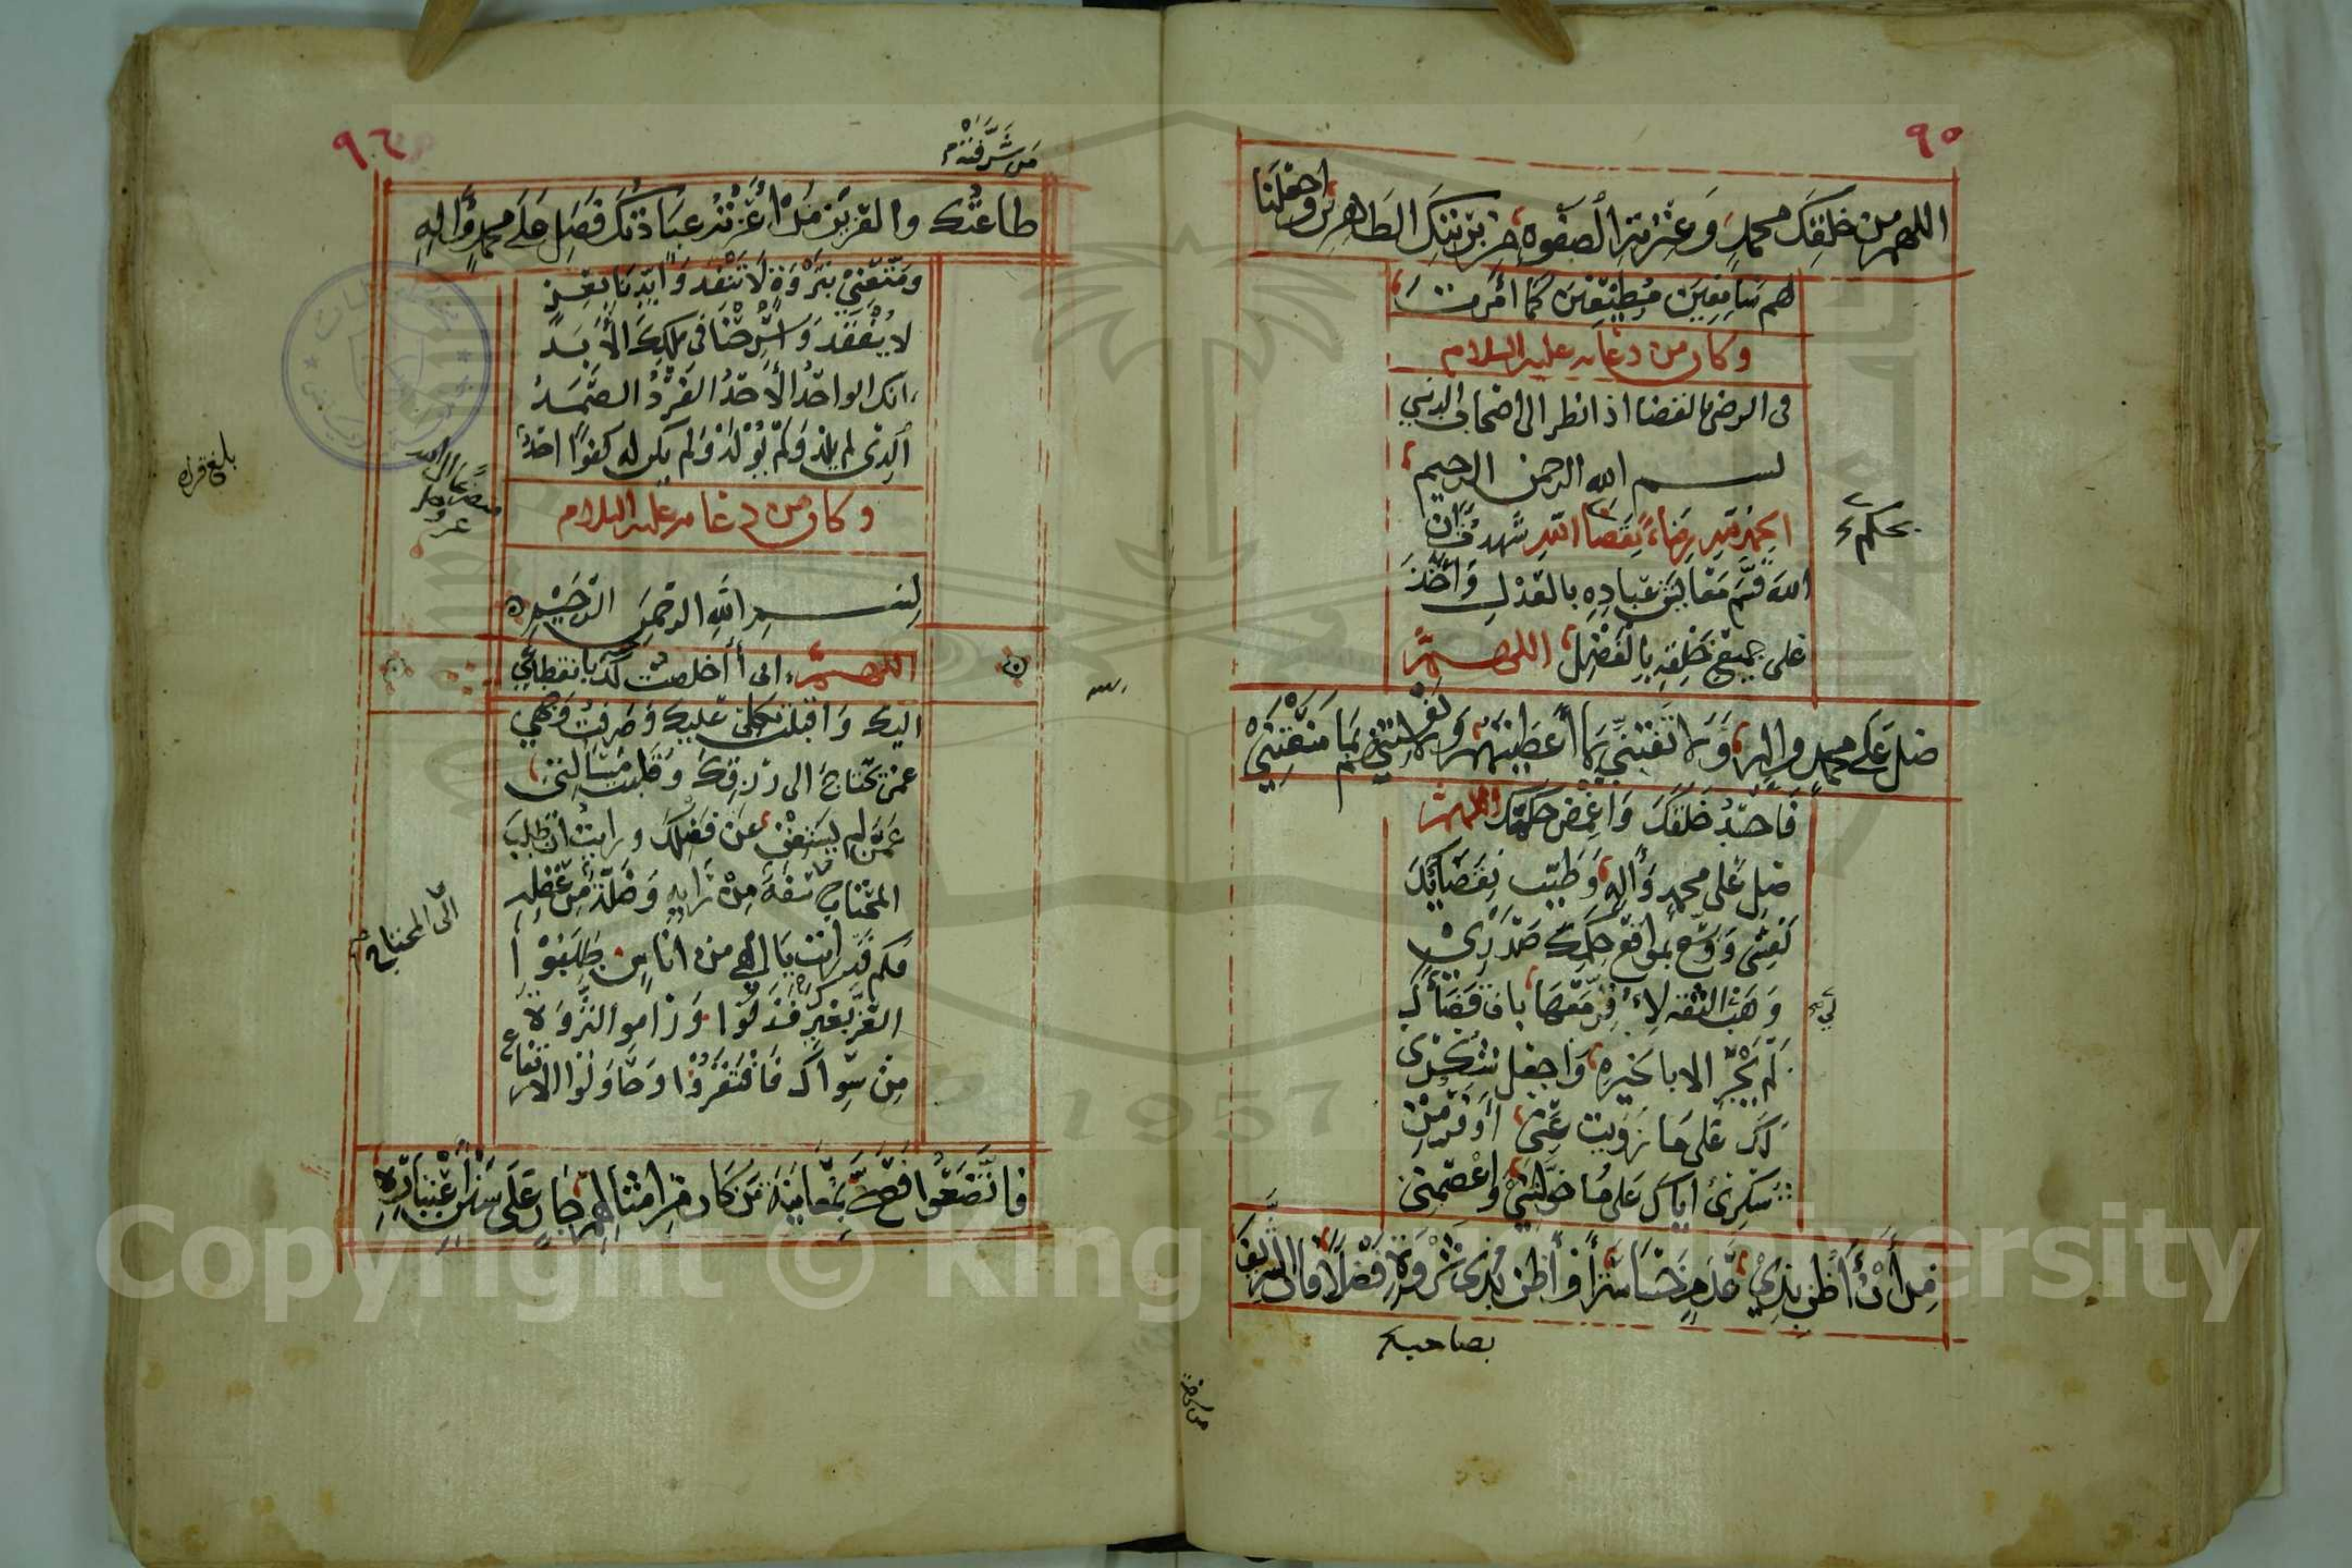 ٩٥
اللهم من خلقك محمد وعترته الصفوه من بريتك الطاهرين واجعلنا
لهم سامعين مطيعين كما أمرت
وكان من دعائه عليه السلام
في الرضى بالقضا اذا نظر الى اصحاب الدنيى
بسم الله الرحمن الرحيم
الحمد لله رضاء بقضا الله شهدت أن
الله قسم معايش عباده بالعدل وأخذ
على جميع خلقه بالفضل اللهم
صل على محمد واله ولا تفتني بما أعطيتهم ولا تفتنهم بما منعتني
فاحسد خلقك واغمض حكمك اللهم
صل على محمد وأله وطيب بقضائك
نفسي ووسع بمواقع حكمك صدري
وهب الثقه لأقر معها بان قضاك
لم يجر الا بالخيره واجعل شكري
لك على ما زويت عني أوفر من
شكري اياك على ما خولتني واعصمني
من أن أظن بذي عدم خساسة أو أظن بذي ثروة فضلا فان الشريف
بحكمك
لي
بصاحب
٩٦
من شرفته
طاعتك والعزيز من أعزته عبادتك فصل على محمد واله
ومتعني بثروة لا تنفد وايدنا بعز
لا يفقد واسرحنا في ملك الأبد
انك الواحد الأحد الفرد الصمد
الذي لم يلد ولم يولد ولم يكن له كفوا احد
وكان من دعائه عليه السلام
بسم الله الرحمن الرحيم
اللهم انى أخلصت لك بانقطاعي
اليك واقبلت بكلي عليك وصرفت وجهي
عمن يحتاج الى رزقك وقلبت مسألتي
عمن لم يستغن عن فضلك ورايت أن طلب
المحتاج سفه من رأيه وضلة من عقله
فكم قد رايت يا الهي من اناس طلبوا
العز بغيرك فذلوا وراموا الثروة
من سواك فافتقروا وحاولوا الارتفاع
فاتضعوا فصح بمعاينة من كان من امثالهم حازم على سنن اعتباره
الى المحتاج
بلغ قراه